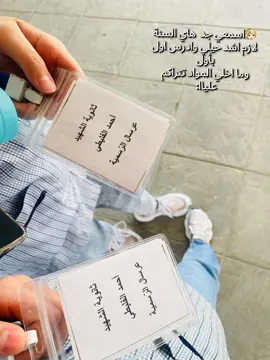 اسمعي جد هاي السنة
لازم اشد حيلي وادرس اول
بأول
وما اخلي المواد تتراكم
علياا؛
ثانوية الشهيد
أحمد القليطي
عرسال الرسمية
ثانوية الشهيد
أحمد القليطي
عرسال الرسمية